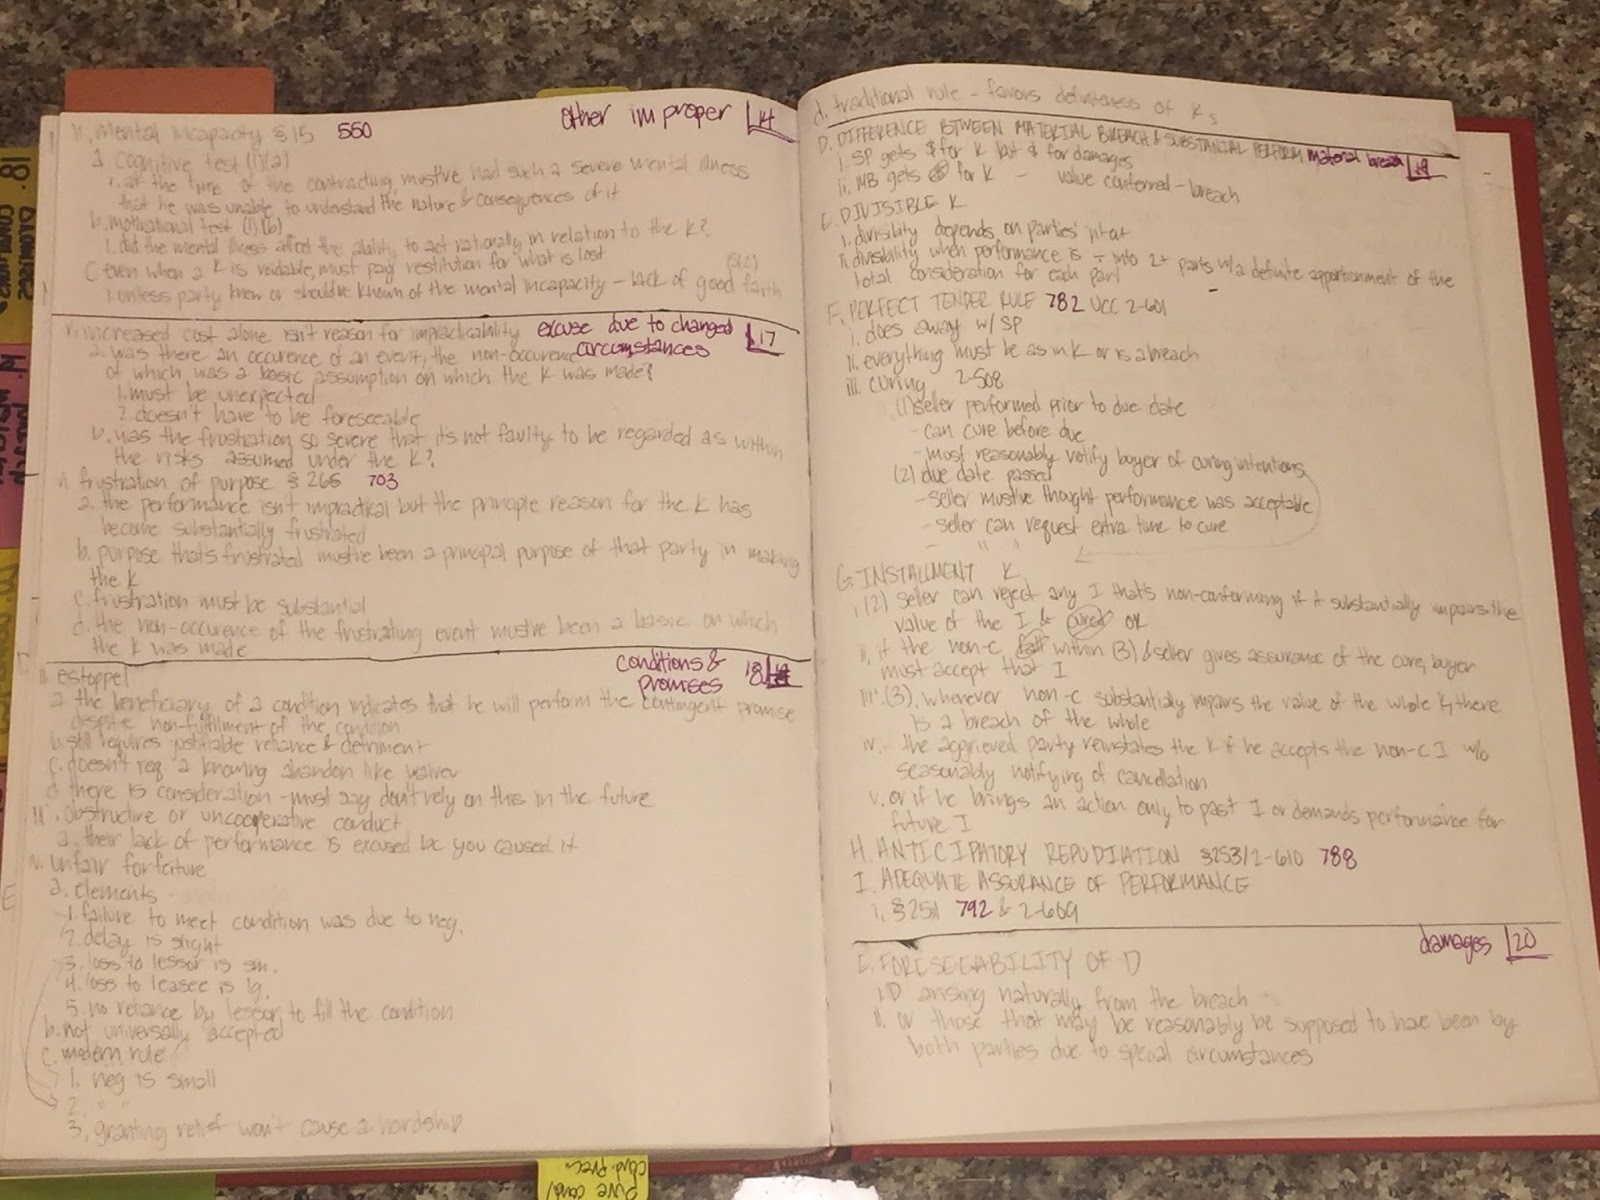 other improper 14
ii. mental incapacity § 15 550
a. cognitive test (1)(a)
1. at the time of the contracting, must've had such a severe mental illness
that he was unable to understand the nature & consequences of it
b. motivational test (1)(b)
1. did the mental illness affect the ability to act rationally in relation to the K?
c. even when a K is voidable, must pay restitution for what is lost
1. unless party knew or should've known of the mental incapacity – lack of good faith
15(2)
v. increased cost alone isn't reason for impracticability
excuse due to changed circumstances 17
a. was there an occurence of an event, the non-occurence
of which was a basic assumption on which the K was made?
1. must be unexpected
2. doesn't have to be foreseeable
b. was the frustration so severe that its not faulty to be regarded as within
the risks assumed under the K?
vi. frustration of purpose § 265 703
a. the performance isn't impractical but the principle reason for the K has
become substantially frustrated
b. purpose that's frustrated must've been a principal purpose of that party in making
the K
c. frustration must be substantial
d. the non-occurence of the frustrating event must've been a basic on which
the K was made
conditions & promises 18
ii. estoppel
a. the beneficiary of a condition indicates that he will perform the contingent promise
despite non-fulfillment of the condition
b. still requires justifiable reliance & detriment
c. doesn't req. a knowing abandon like waiver
d. there is consideration - must say don't rely on this in the future
iii. obstructive or uncooperative conduct
a. their lack of performance is excused bc you caused it
iv. unfair forfeiture
a. elements
1. failure to meet condition was due to neg.
2. delay is slight
3. loss to lessor is sm.
4. loss to leasee is lg.
5. no reliance by lessor to fill the condition
b. not universally accepted
c. modern rule
1. neg is small
2. " "
3. granting relief won't cause a hardship
cond. prec.
pure cond/
d. traditional rule – favors definiteness of Ks
D. DIFFERENCE BTWEEN MATERIAL BREACH & SUBSTANTIAL PERFORM
material breach 19
i. SP gets $ for K but $ for damages
ii. MB gets for K – value conferred – breach
E. DIVISIBLE K
i. divisibility depends on parties' intent
ii. divisibility when performance is ÷ into 2+ parts w/ a definite apportionment of the
total consideration for each part
F. PERFECT TENDER RULE 782 UCC 2-601
i. does away w/ SP
ii. everything must be as in K or is a breach
iii. curing 2-508
(1) seller performed prior to due date
- can cure before due
- must reasonably notify buyer of curing intentions
(2) due date passed
- seller must've thought performance was acceptable
- seller can request extra time to cure
- " "
G. INSTALLMENT K
i. (2) seller can reject any I that's non-conforming if it substantially impairs the
value of the I & cured OK
ii. if the non-c fall within (3) & seller gives assurance of the cure, buyer
must accept that I
iii. (3), whenever non-c substantially impairs the value of the whole K, there
is a breach of the whole
iv. the aggrieved party reinstates the K if he accepts the non-c I w/o
seasonably notifying of cancellation
v. or if he brings an action only to past I or demands performance for
future I
H. ANTICIPATORY REPUDIATION §253/2-610 788
I. ADEQUATE ASSURANCE OF PERFORMANCE
i. §251 792 & 2-609
damages 20
E. FORESEEABILITY OF D
i. D arising naturally from the breach
ii. or those that may be reasonably be supposed to have been by
both parties due to special circumstances